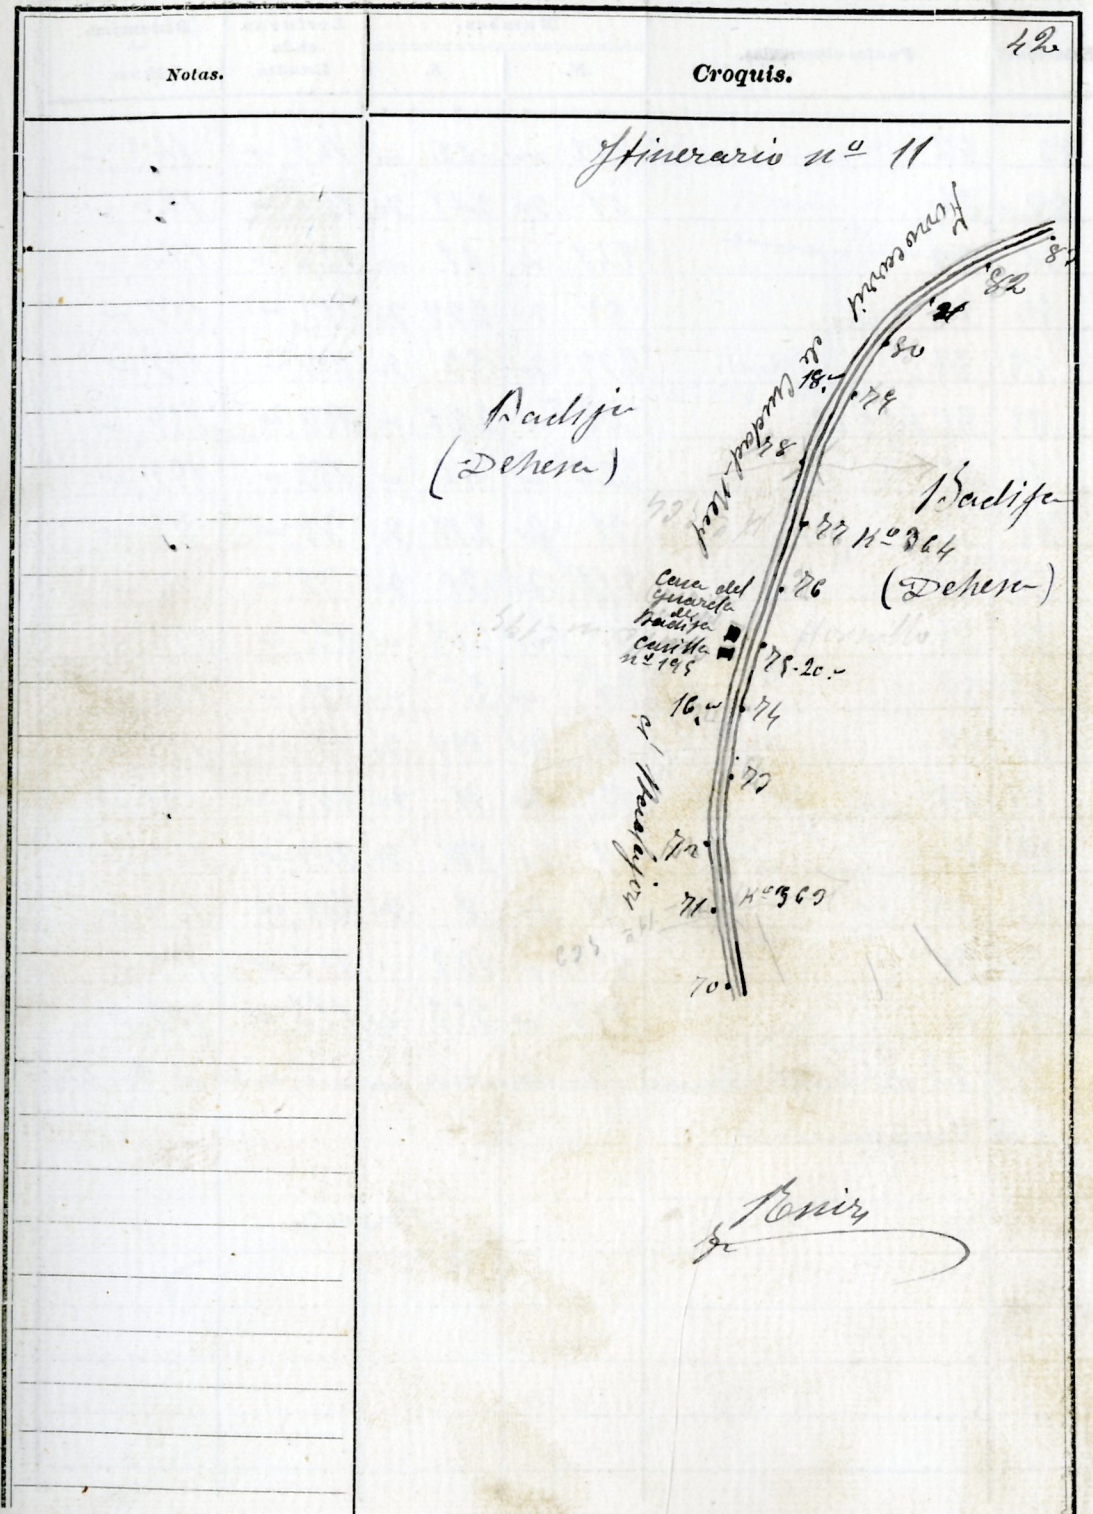 42
Notas.
Croquis.
Itinerario nº 11
Ferrocarril de Ciudad-Real
82
80
18.
79
Badija
(Dehesa)
78
Badija
(Dehesa)
77 Kº 364
76
Casa del
guarda
de
Badija
Casilla
nº 195
75-20.-
16.
74
á
73
72
71
Kº 363
70